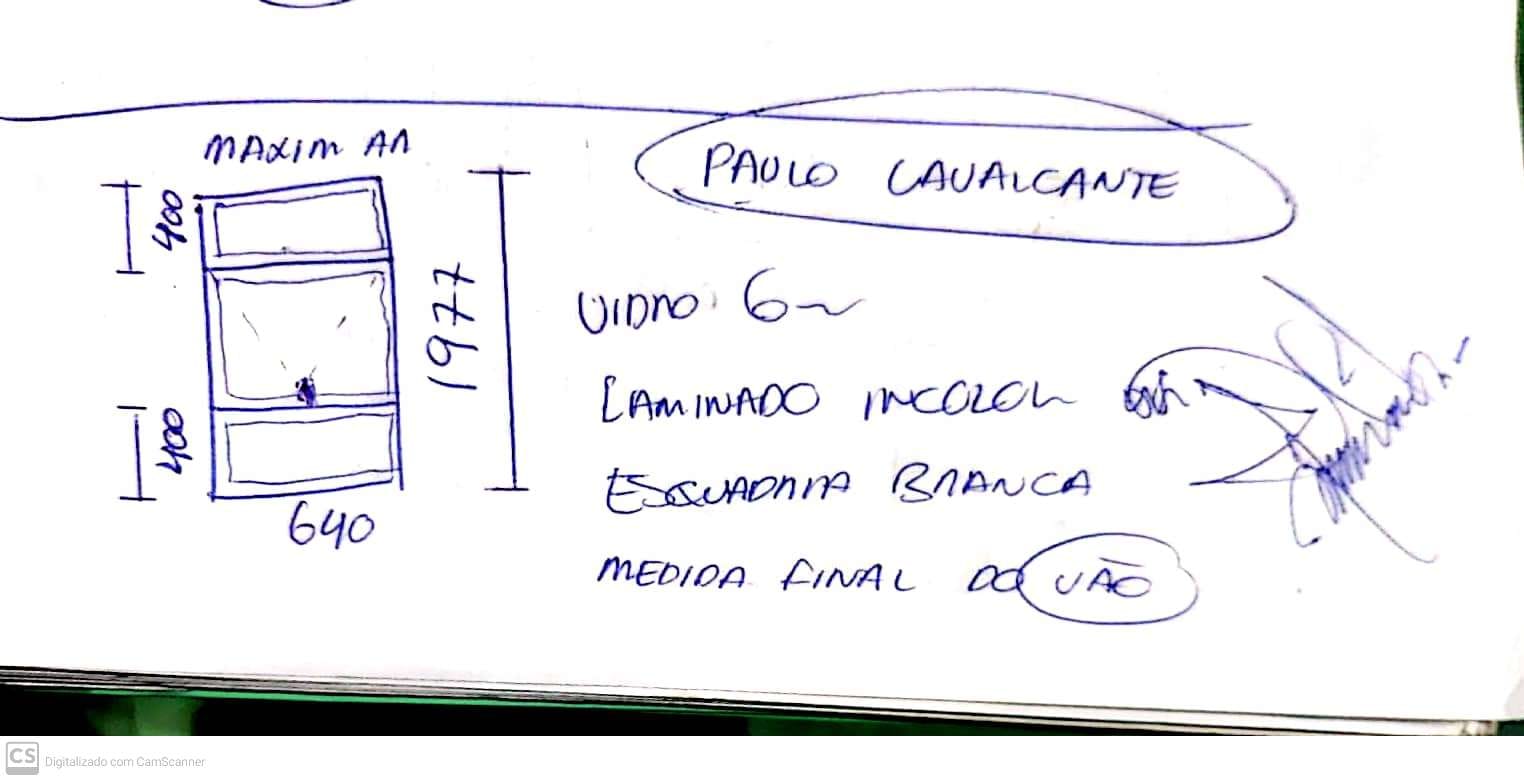 MAXIM AR
PAULO CAVALCANTE
400
1977
400
640
VIDRO 6
LAMINADO INCOLOR
ESQUADRIA BRANCA
MEDIDA FINAL DO VÃO
CS Digitalizado com CamScanner